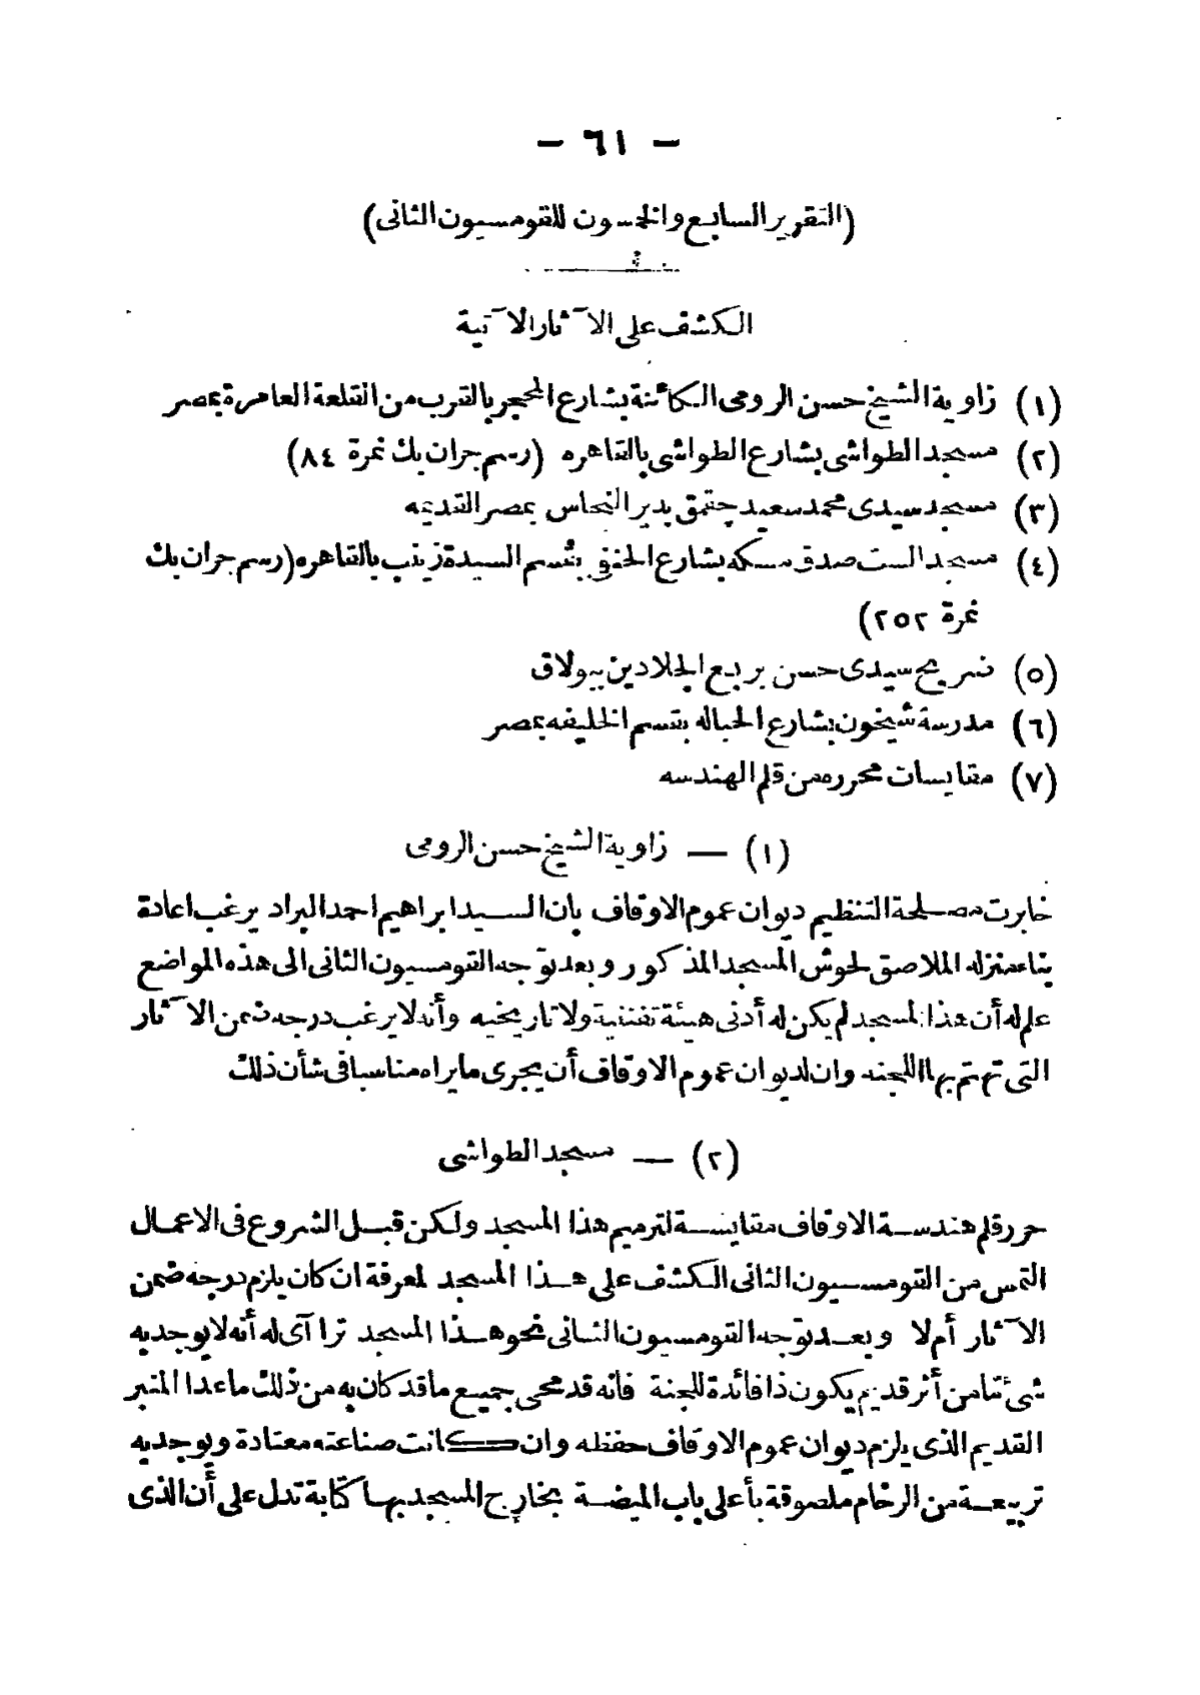 — ٦١ —
(التقرير السابع والخمسون للقومسيون الثانى)
الكشف على الآثار الآتية
(١) زاوية الشيخ حسن الرومى الكائنة بشارع المحجر بالقرب من القلعة العامرة بمصر
(٢) مسجد الطواشى بشارع الطواشى بالقاهره (رسم جران بك نمرة ٨٤)
(٣) مسجد سيدى محمد سعيد جقمق بدير النحاس بمصر القديمه
(٤) مسجد الست صدق مسكه بشارع الحنفى بقسم السيدة زينب بالقاهره (رسم جران بك
نمرة ٢٥٢)
(٥) ضريح سيدى حسن بربع الجلادين ببولاق
(٦) مدرسة شيخون بشارع الحباله بقسم الخليفه بمصر
(٧) مقايسات محرره من قلم الهندسه
(١) — زاوية الشيخ حسن الرومى
خابرت مصلحة التنظيم ديوان عموم الاوقاف بان السيد ابراهيم احمد البراد يرغب اعادة
بناء منزله الملاصق لحوش المسجد المذكور وبعد توجه القومسيون الثانى الى هذه المواضع
علم له أن هذا المسجد لم يكن له أدنى هيئة تفننية ولا تاريخيه وأنه لا يرغب درجه ضمن الآثار
التى تهتم بها اللجنه وان لديوان عموم الاوقاف أن يجرى ما يراه مناسبا فى شأن ذلك
(٢) — مسجد الطواشى
حرر قلم هندسة الاوقاف مقايسة لترميم هذا المسجد ولكن قبل الشروع فى الاعمال
التمس من القومسيون الثانى الكشف على هذا المسجد لمعرفة ان كان يلزم درجه ضمن
الآثار أم لا وبعد توجه القومسيون الثانى نحو هذا المسجد تراآى له أنه لا يوجد به
شئ تما من أثر قديم يكون ذا فائدة للجنة فانه قد محى جميع ما قد كان به من ذلك ما عدا المنبر
القديم الذى يلزم ديوان عموم الاوقاف حفظه وان كانت صناعته معتادة ويوجد به
تربيعة من الرخام ملصوقة بأعلى باب الميضة بخارج المسجد بها كتابة تدل على أن الذى